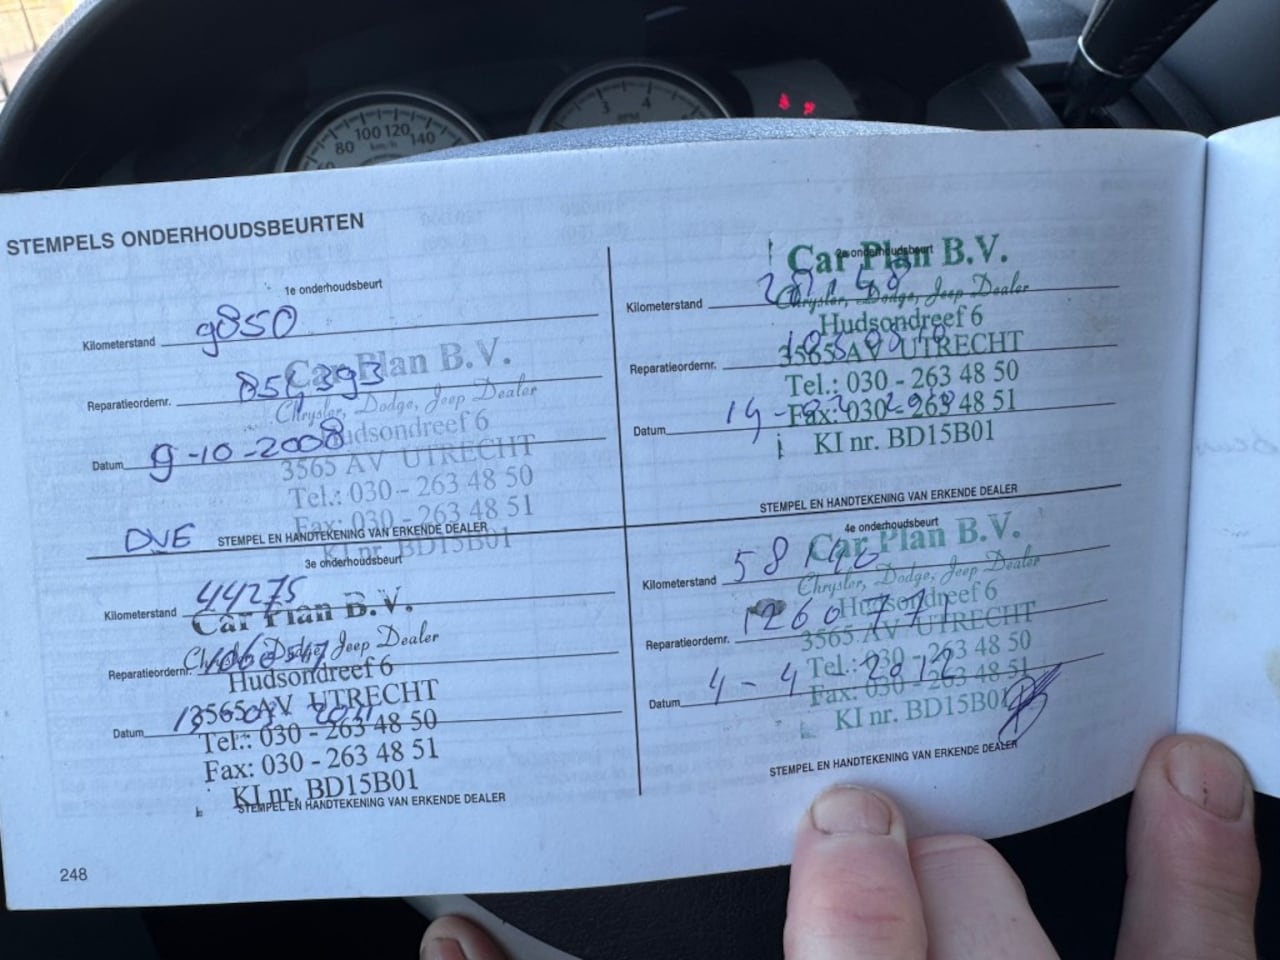 80 100 120 140
km/h
3 4
RPM
STEMPELS ONDERHOUDSBEURTEN
1e onderhoudsbeurt
Kilometerstand 9850
Reparatieordernr.
Datum 9-10-2008
Car Plan B.V.
Chrysler, Dodge, Jeep Dealer
Hudsondreef 6
3565 AV UTRECHT
Tel.: 030 - 263 48 50
Fax: 030 - 263 48 51
KI nr. BD15B01
DVE
STEMPEL EN HANDTEKENING VAN ERKENDE DEALER
2e onderhoudsbeurt
Kilometerstand
Reparatieordernr.
Datum
Car Plan B.V.
Chrysler, Dodge, Jeep Dealer
Hudsondreef 6
3565 AV UTRECHT
Tel.: 030 - 263 48 50
Fax: 030 - 263 48 51
KI nr. BD15B01
STEMPEL EN HANDTEKENING VAN ERKENDE DEALER
3e onderhoudsbeurt
Kilometerstand 44275
Reparatieordernr.
Datum
Car Plan B.V.
Chrysler, Dodge, Jeep Dealer
Hudsondreef 6
3565 AV UTRECHT
Tel.: 030 - 263 48 50
Fax: 030 - 263 48 51
KI nr. BD15B01
STEMPEL EN HANDTEKENING VAN ERKENDE DEALER
4e onderhoudsbeurt
Kilometerstand 58140
Reparatieordernr. 1260771
Datum 4-4-2012
Car Plan B.V.
Chrysler, Dodge, Jeep Dealer
Hudsondreef 6
3565 AV UTRECHT
Tel.: 030 - 263 48 50
Fax: 030 - 263 48 51
KI nr. BD15B01
STEMPEL EN HANDTEKENING VAN ERKENDE DEALER
248